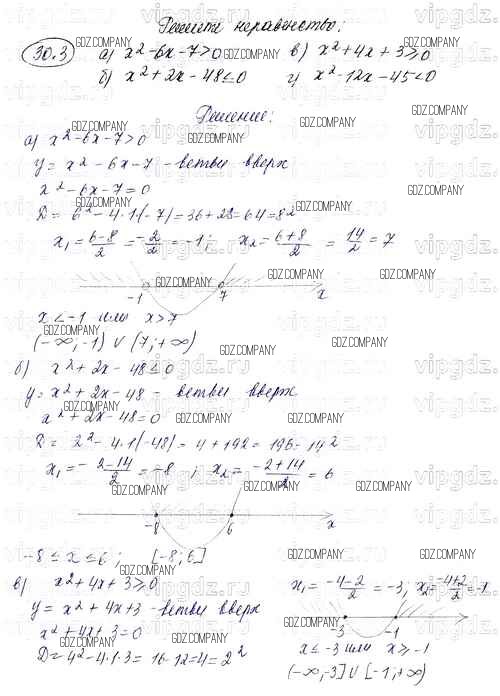 Решите неравенство:
30.3 а) x²-6x-7>0 в) x²+4x+3≥0
б) x²+2x-48≤0 г) x²-12x-45<0
Решение:
а) x²-6x-7>0
y = x²-6x-7 - ветви вверх
x²-6x-7=0
D = 6²-4·1·(-7)=36+28=64=8²
x₁ = (6-8)/2 = -2/2 = -1; x₂ = (6+8)/2 = 14/2 = 7
-1 7 x
x<-1 или x>7
(-∞;-1) ∪ (7;+∞)
б) x²+2x-48≤0
y = x²+2x-48 - ветви вверх
x²+2x-48=0
D = 2²-4·1(-48)= 4+192= 196= 14²
x₁ = -(2-14)/2 = -8; x₂ = (-2+14)/2 = 6
-8 6 x
-8 ≤ x ≤ 6; [-8;6]
в) x²+4x+3≥0
y = x²+4x+3 - ветви вверх
x²+4x+3=0
D=4²-4·1·3= 16-12=4=2²
x₁ = (-4-2)/2 = -3; x₂ = (-4+2)/2 = -1
-3 -1
x ≤ -3 или x ≥ -1
(-∞;-3] ∪ [-1;+∞)
GDZ.COMPANY
vipgdz.ru